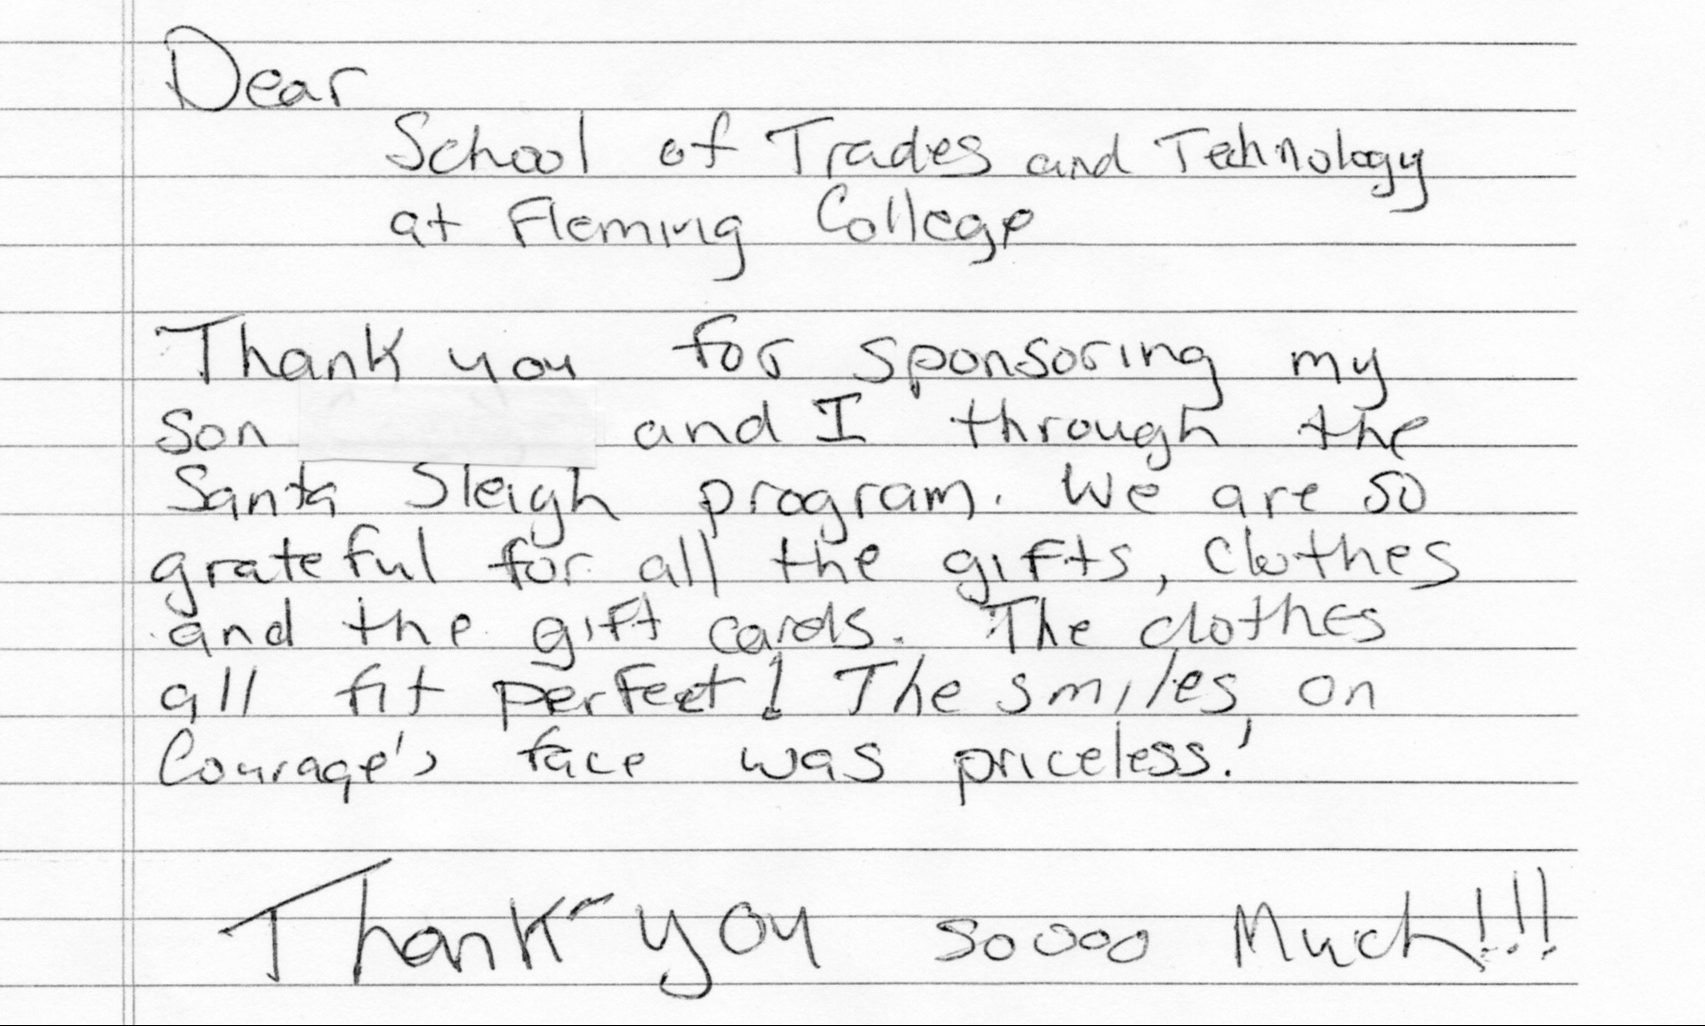 Dear
School of Trades and Technology
at Fleming College
Thank you for sponsoring my
son and I through the
Santa Sleigh program. We are so
grateful for all the gifts, clothes
and the gift cards. The clothes
all fit perfect! The smiles on
Courage's face was priceless!
Thank you soooo Much!!!